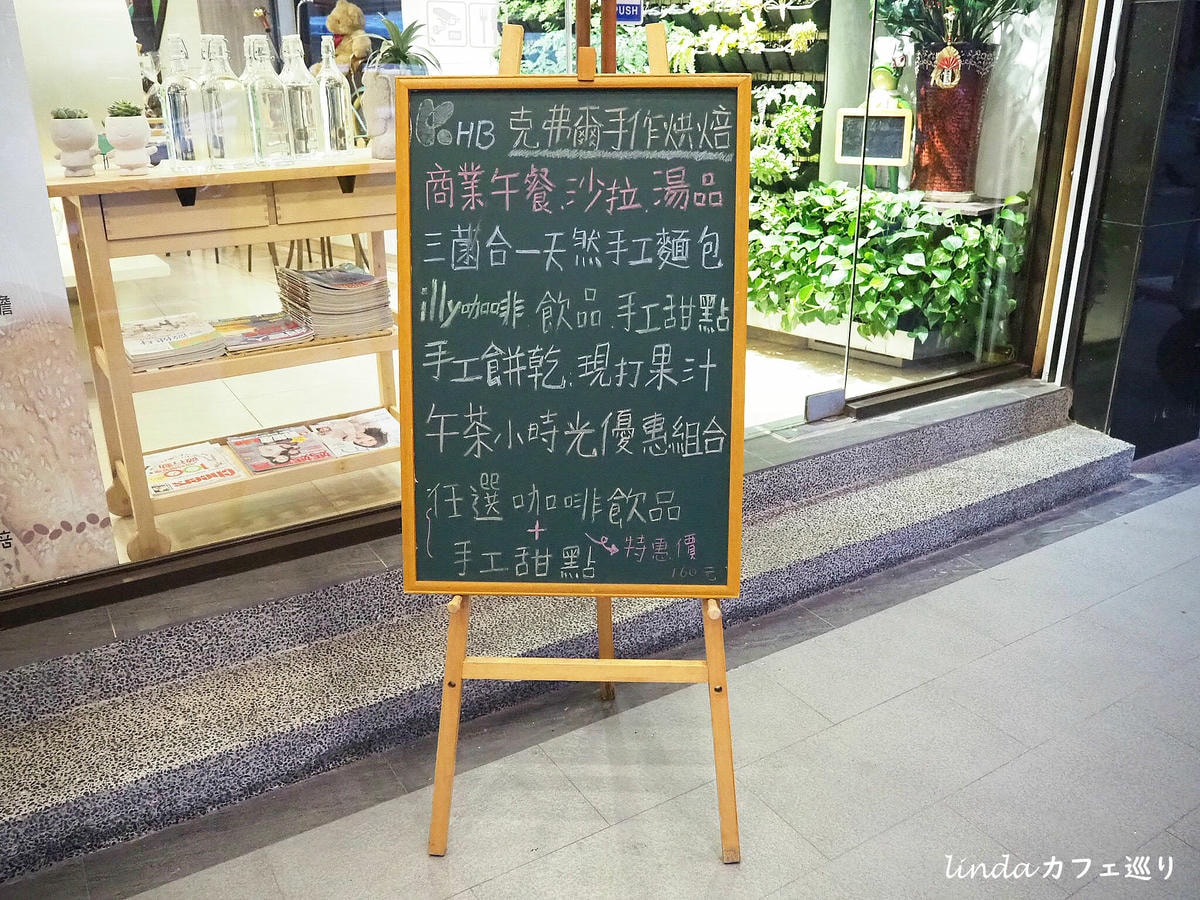 PUSH
K HB 克弗爾手作烘焙
商業午餐.沙拉.湯品
三菌合一天然手工麵包
illy咖啡 飲品.手工甜點
手工餅乾.現打果汁
午茶小時光優惠組合
任選咖啡飲品
+
手工甜點 特惠價
160元
Cheers
焙
linda カフェ巡り